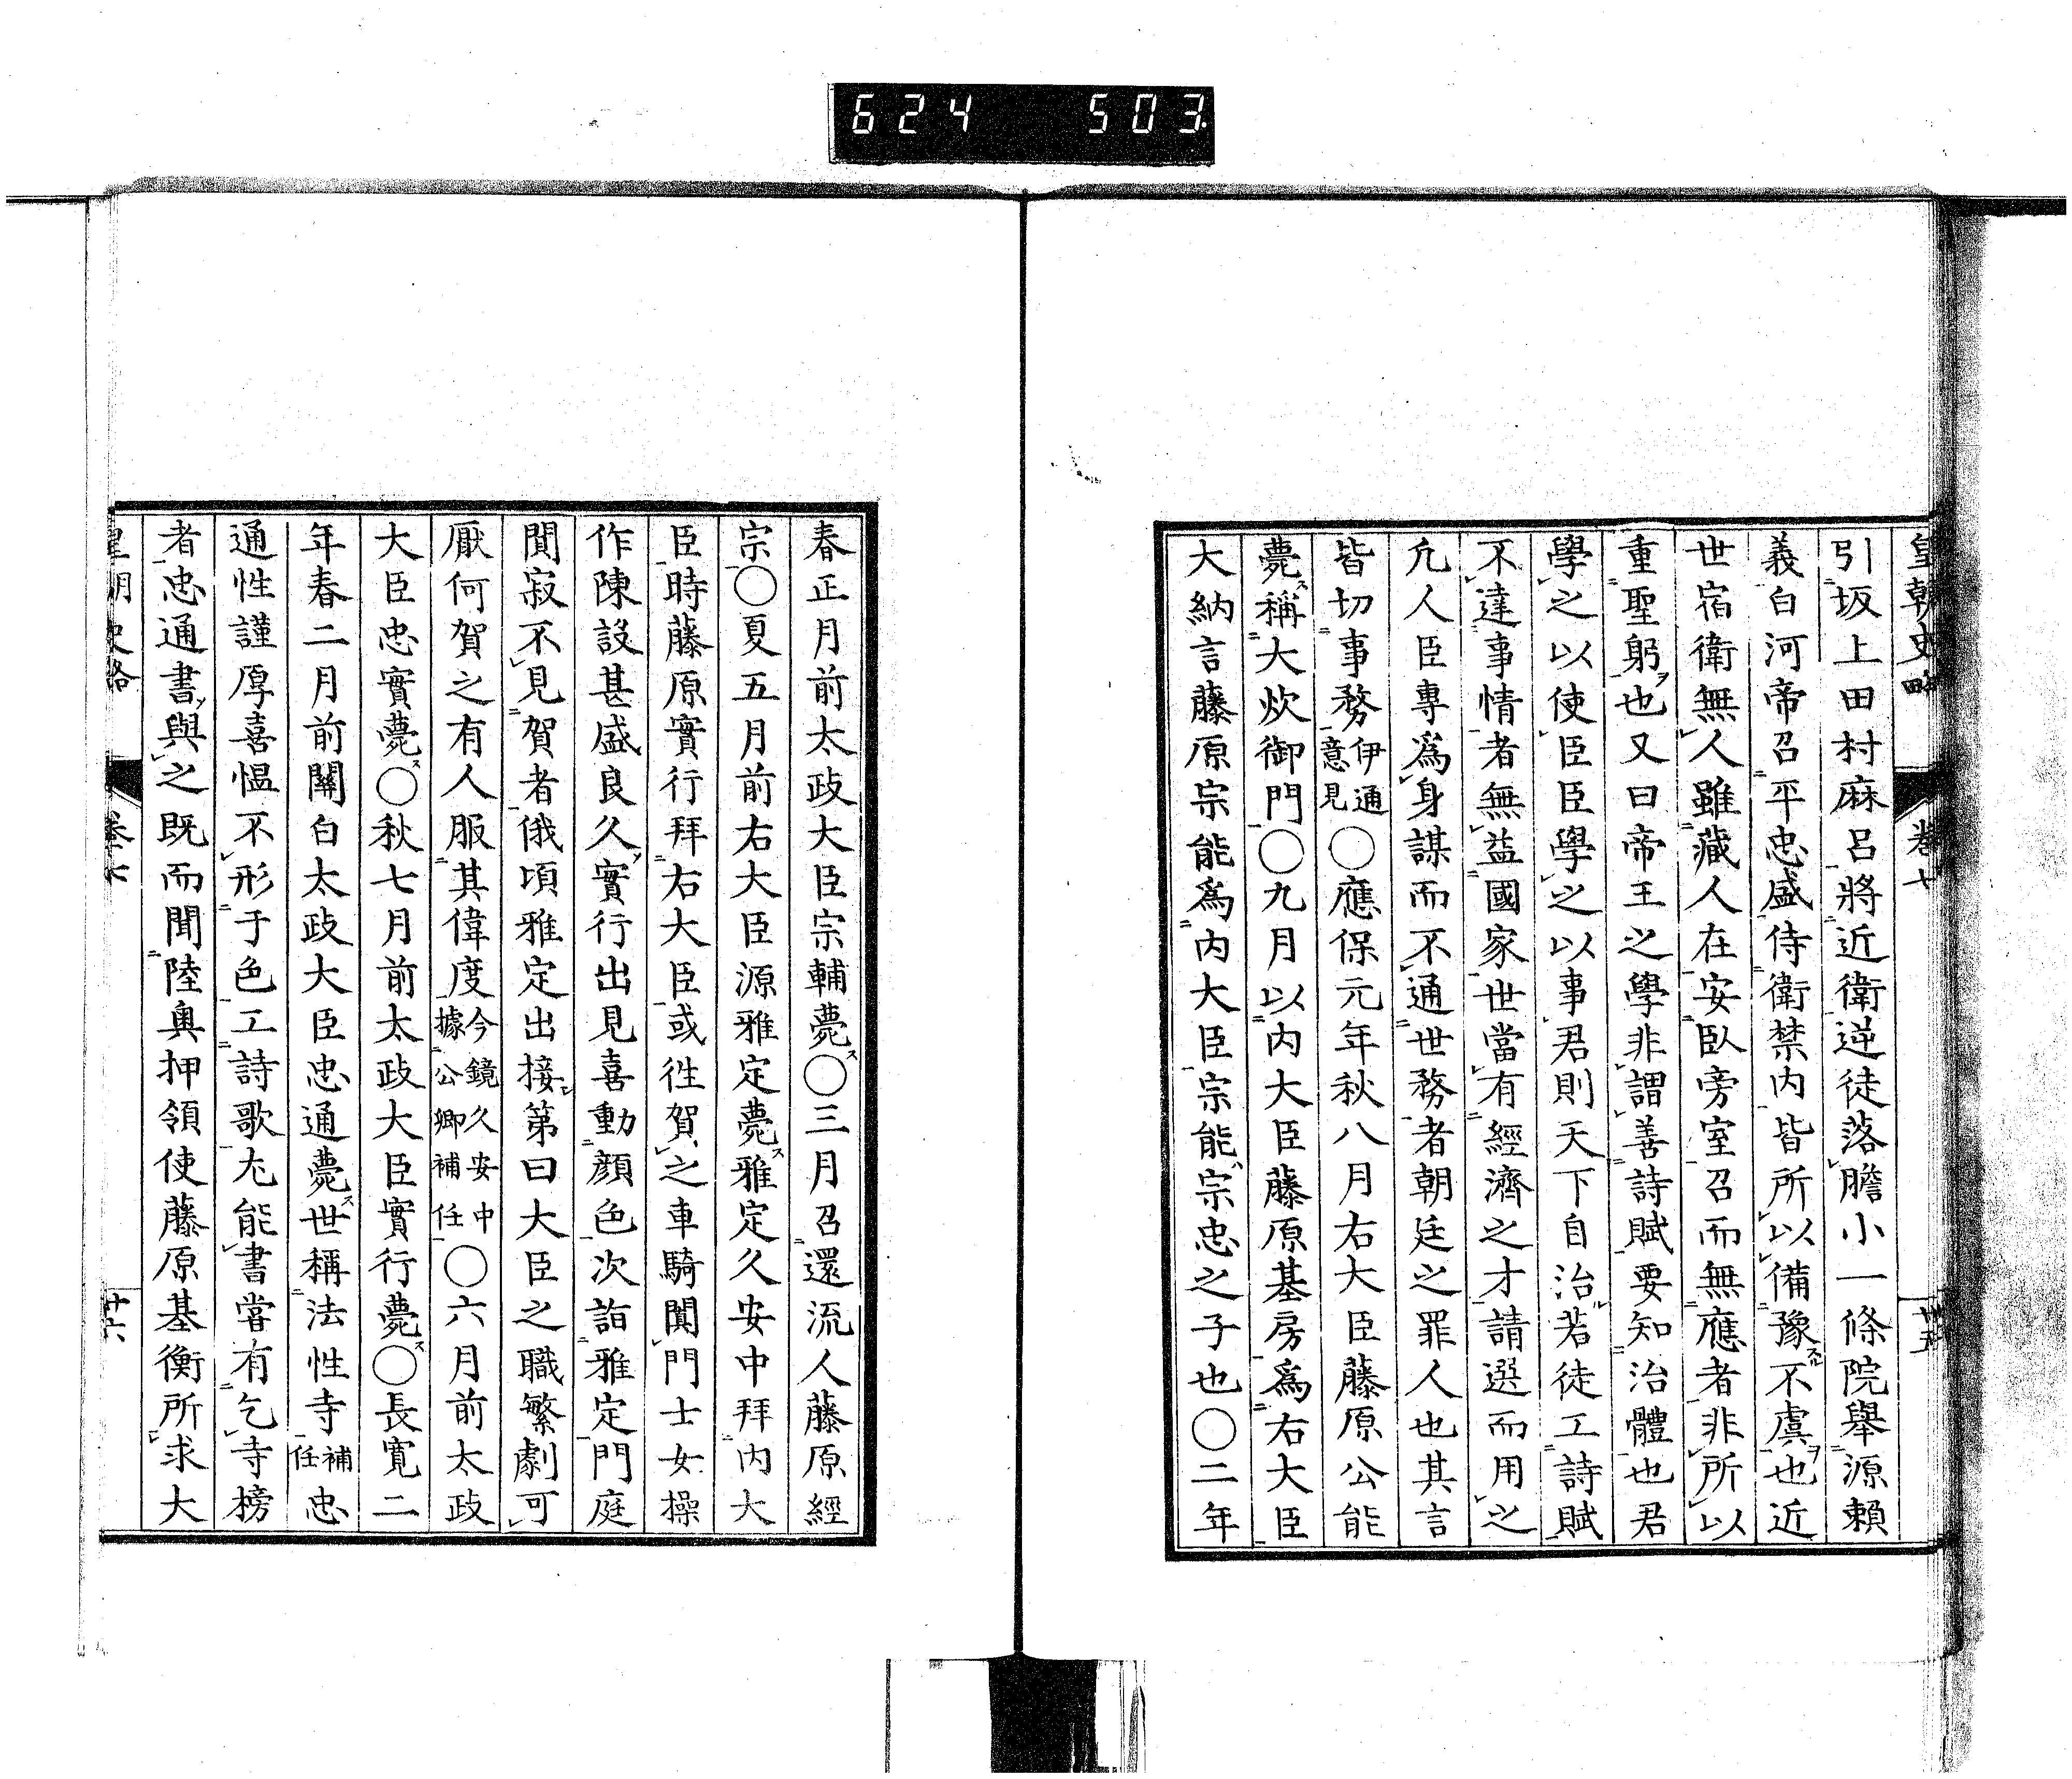 624 503
皇朝史略 卷七 廿五
引坂上田村麻呂將近衛逆徒落膽小一條院舉源賴
義白河帝召平忠盛侍衛禁內皆所以備豫不虞也近
世宿衛無人雖藏人在安臥旁室召而無應者非所以
重聖躬也又曰帝王之學非謂善詩賦要知治體也君
學之以使臣臣學之以事君則天下自治若徒工詩賦
不達事情者無益國家世當有經濟之才請選而用之
凡人臣專爲身謀而不通世務者朝廷之罪人也其言
皆切事務伊通意見〇應保元年秋八月右大臣藤原公能
薨稱大炊御門〇九月以內大臣藤原基房爲右大臣
大納言藤原宗能爲內大臣宗能宗忠之子也〇二年
春正月前太政大臣宗輔薨〇三月召還流人藤原經
宗〇夏五月前右大臣源雅定薨雅定久安中拜內大
臣時藤原實行拜右大臣或徃賀之車騎闐門士女操
作陳設甚盛良久實行出見喜動顔色次詣雅定門庭
閴寂不見賀者俄頃雅定出接第曰大臣之職繁劇可
厭何賀之有人服其偉度今鏡久安中據公卿補任〇六月前太政
大臣忠實薨〇秋七月前太政大臣實行薨〇長寬二
年春二月前關白太政大臣忠通薨世稱法性寺補任忠
通性謹厚喜慍不形于色工詩歌尤能書嘗有乞寺榜
者忠通書與之既而聞陸奥押領使藤原基衡所求大
皇朝史略 卷七 廿六